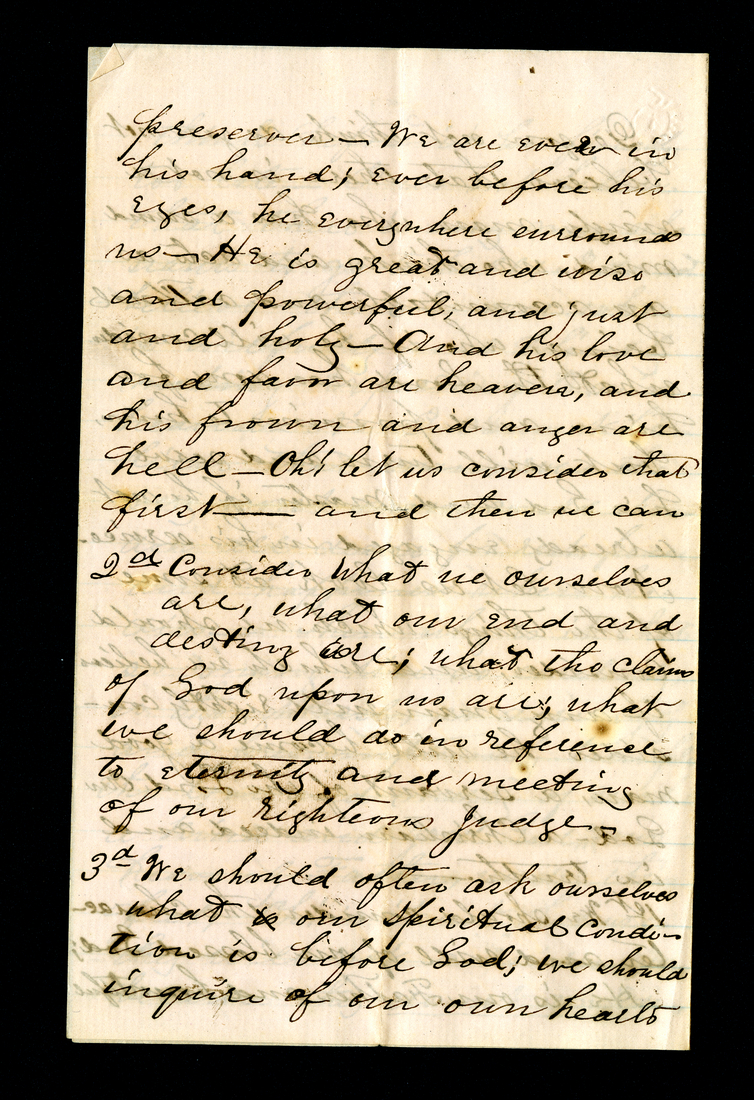 preserver — We are ever in
his hand; ever before his
eyes, he everywhere surrounds
us — He is great and wise
and powerful, and just
and holy — And his love
and favor are heaven, and
his frown and anger are
hell — Oh! let us consider that
first — and then we can
2d Consider what we ourselves
are, what our end and
destiny are; what the claims
of God upon us are; what
we should do in reference
to eternity and meeting
of our righteous Judge —
3d We should often ask ourselves
what is our spiritual condi-
tion is before God; we should
inquire of our own hearts